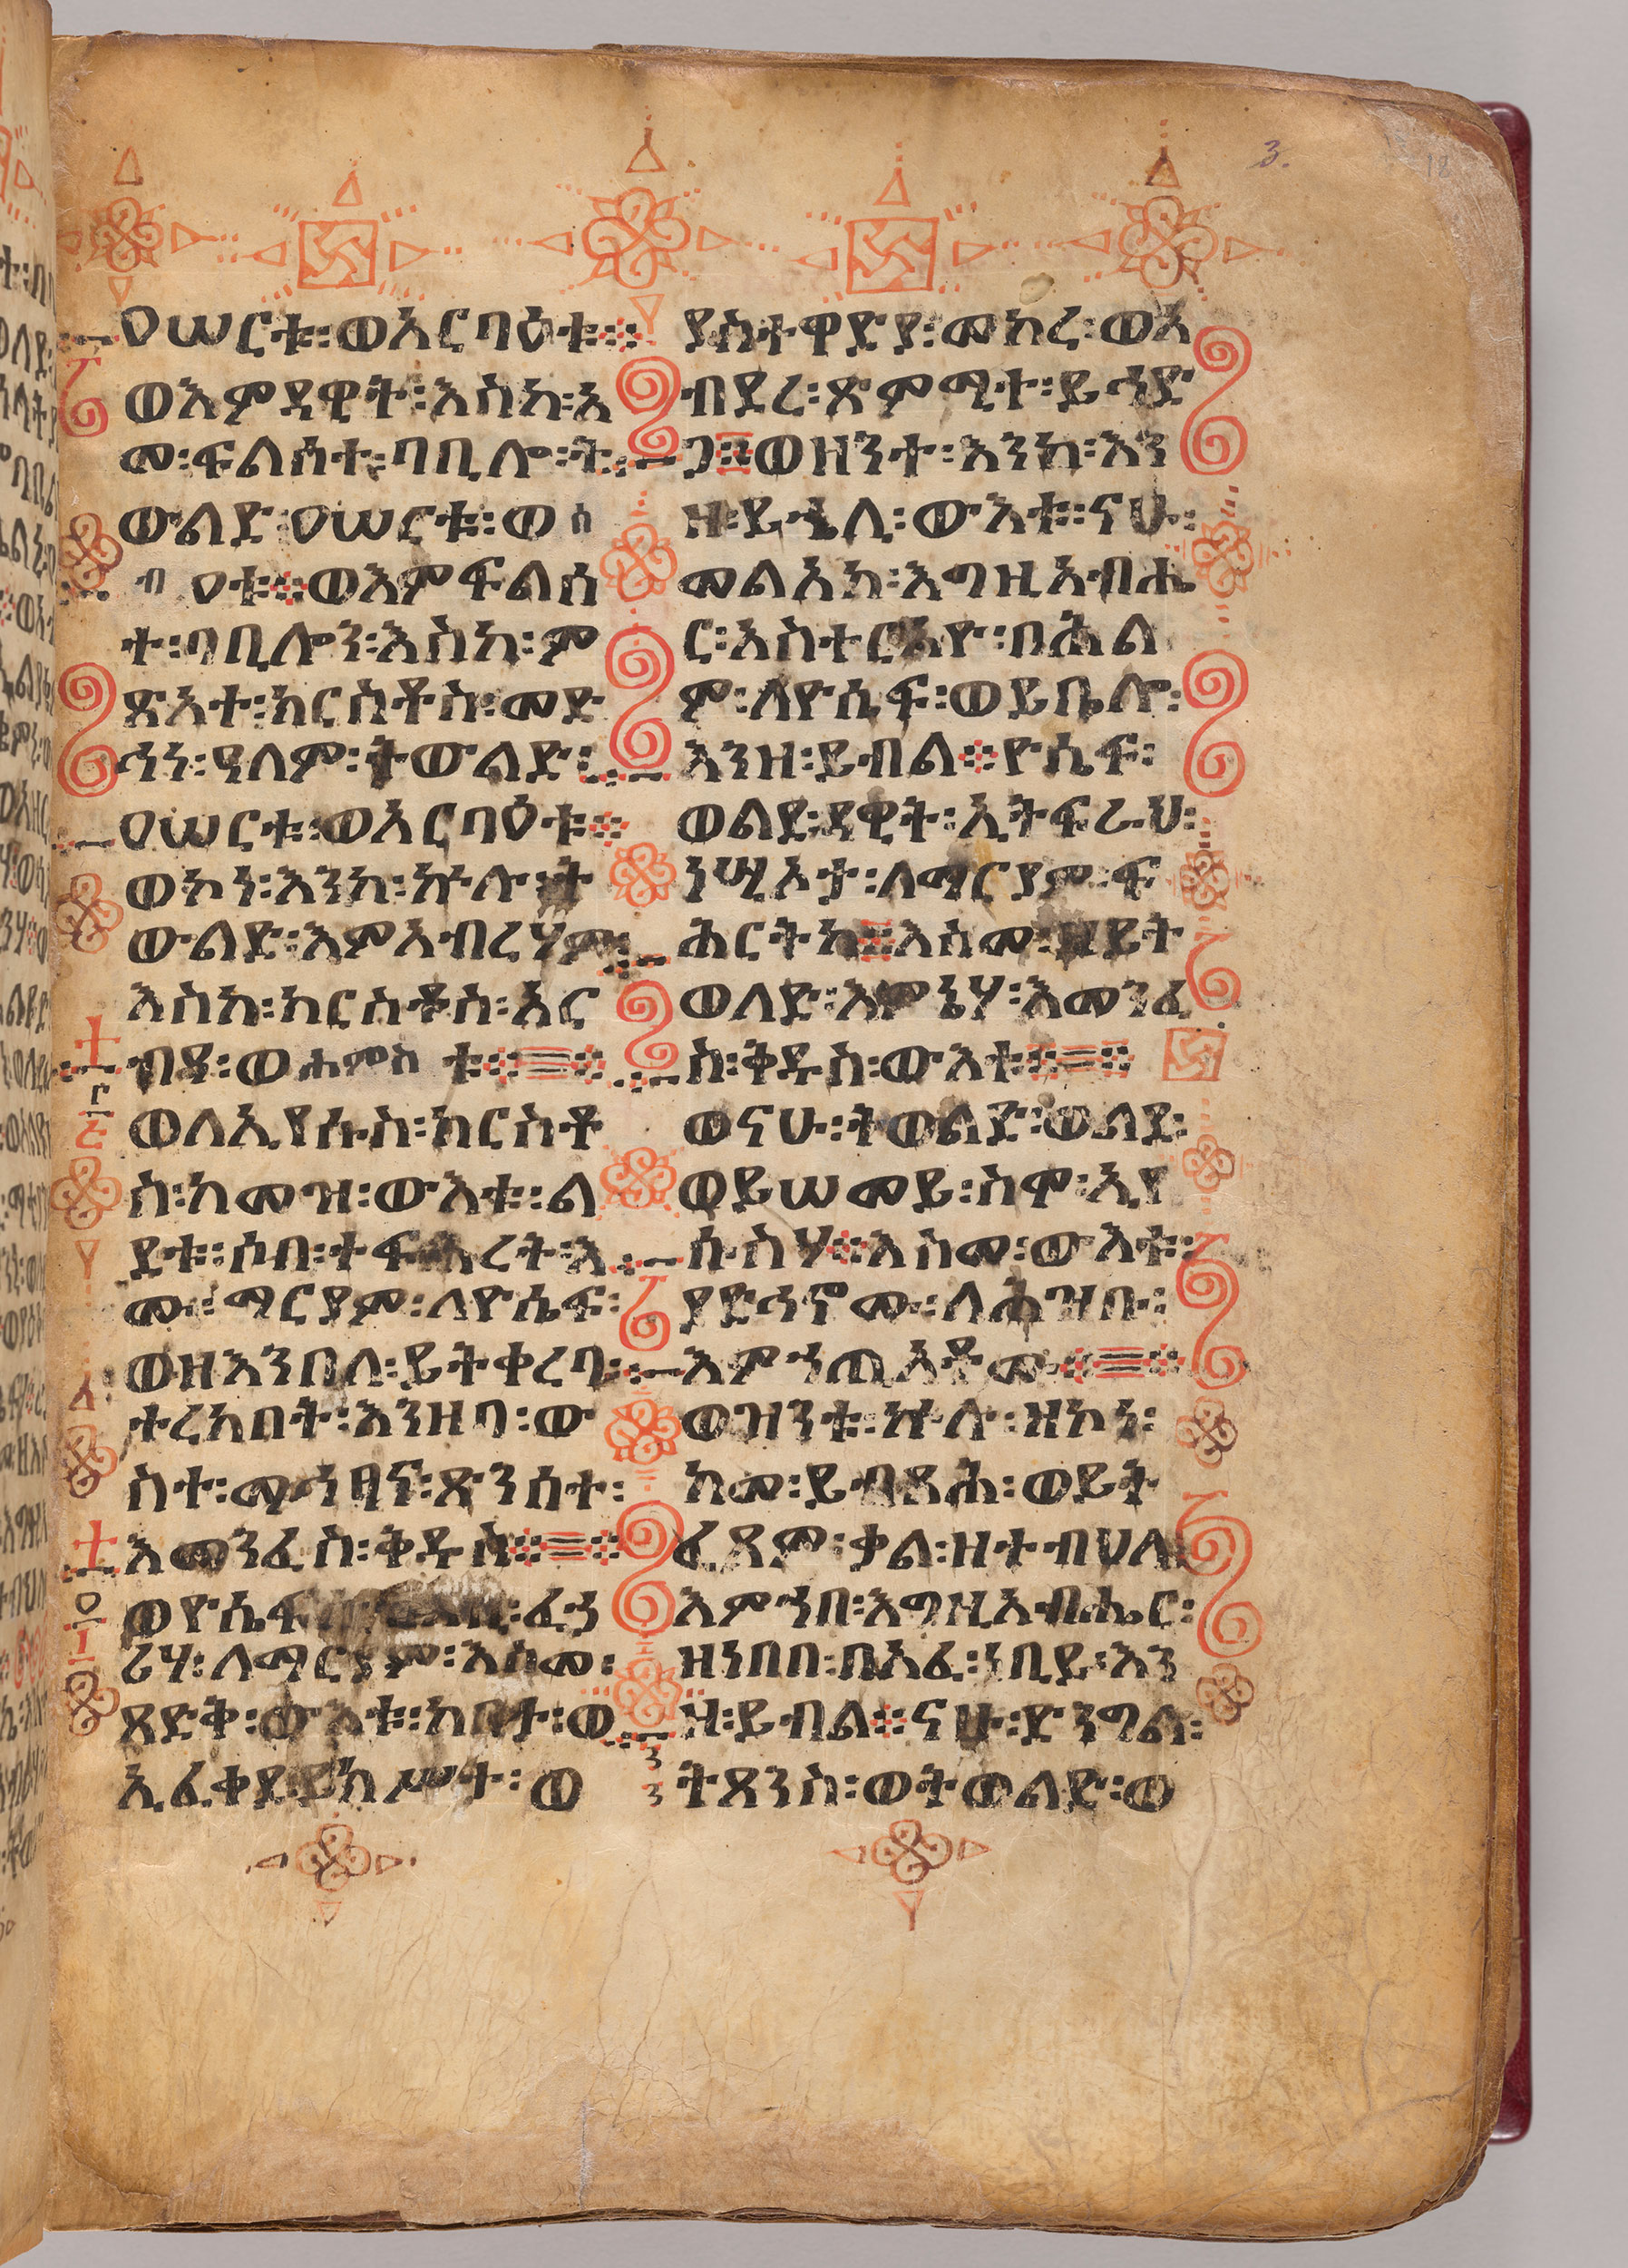 ዐሠርቱ፡ወአርባዕቱ፨
ወእምዳዊት፡እስከ፡አ
መ፡ፍልሰተ፡ባቢሎ፡ት
ውልድ፡ዐሠርቱ፡ወ ሰ
ብ ዐቱ፨ወእምፍልሰ
ተ፡ባቢሎን፡እስከ፡ም
ጽአተ፡ክርስቶስ፡መድ
ኅነ፡ዓለም፡ትውልድ፡
ዐሠርቱ፡ወአርባዕቱ፨
ወኮነ፡እንከ፡ኵሉ፡ት
ውልድ፡እምአብረሃም፡
እስከ፡ክርስቶስ፡አር
ብዓ፡ወ ሐምስ ቱ፨=፨
ወለኢየሱስ፡ክርስቶ
ስ፡ከመዝ፡ውእቱ፡ል
ደቱ፡ሶበ፡ተፍኅረት፡እ
ሙ፡ማርያም፡ለዮሴፍ፡
ወዘእንበለ፡ይትቀረባ፡
ተረክበት፡እንዘባ፡ው
ስተ፡ማኅፀና፡ጽንሰተ፡
እመንፈስ፡ቅዱስ፨=፨
ወዮሴፍ ፈኃ
ሪሃ፡ለማርያም፡እስመ፡
ጻድቅ፡ውእቱ፡ከሠታ፡ወ
ኢፈቀደ ይክሥት፡ወ
ያስተዋድያ፡መከረ፡ወአ
ብደረ፡ጽምሚተ፡ይኅድ
ጋ፨ወዘንተ፡እንከ፡እን
ዘ፡ይኄሊ፡ውእቱ፡ናሁ፡
መልአከ፡እግዚአብሔ
ር፡አስተርአዮ፡በሕል
ም፡ለዮሴፍ፡ወይቤሎ፡
እንዘ፡ይብል፨ዮሴፍ፡
ወልደ፡ዳዊት፡ኢትፍራህ፡
ነሢኦታ፡ለማርያም፡ፍ
ሕርትከ፨እስመ፡ዘይት
ወለድ፡እምኔሃ፡እመንፈ
ስ፡ቅዱስ፡ውእቱ፨=፨
ወናሁ፡ትወልድ፡ወልደ፡
ወይሠመይ፡ስሞ፡ኢየ
ሱስሃ፨እስመ፡ውእቱ፡
ያድኅኖሙ፡ለሕዝቡ፡
እምኀጢአቶሙ፨=፨
ወዝንቱ፡ኵሉ፡ዘኮነ፡
ከመ፡ይብጻሕ፡ወይት
ፈጸም፡ቃል፡ዘተብህለ
እምኀበ፡እግዚአብሔር፡
ዘነበበ፡በአፈ፡ነቢይ፡እን
ዘ፡ይብል፨ናሁ፡ድንግል፡
ትጸንስ፡ወትወልድ፡ወ
3.
12